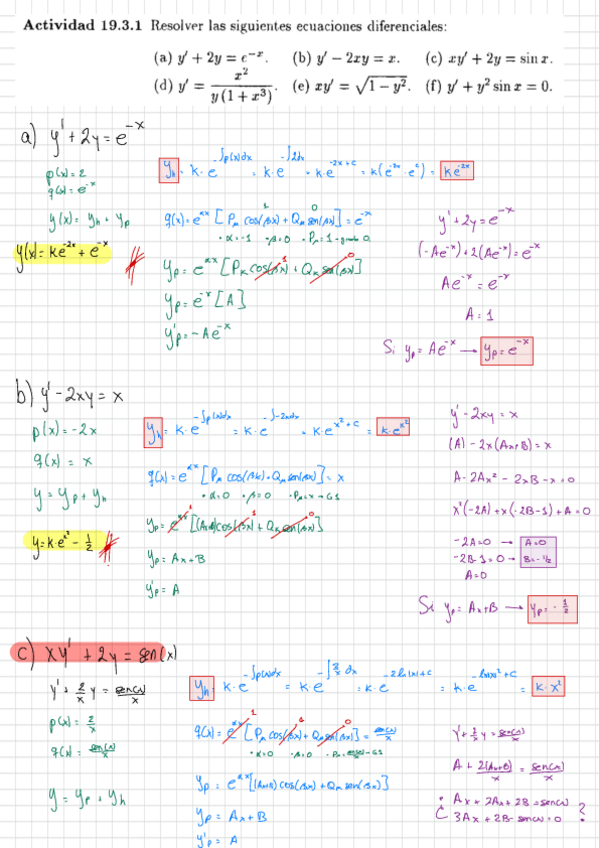 Actividad 19.3.1 Resolver las siguientes ecuaciones diferenciales:
(a) y′ + 2y = e^{−x}. (b) y′ − 2xy = x. (c) xy′ + 2y = sin x.
(d) y′ = x² / (y(1 + x³)). (e) xy′ = √(1 − y²). (f) y′ + y² sin x = 0.
a) y' + 2y = e^{-x}
p(x) = 2
q(x) = e^{-x}
y(x) = y_h + y_p
y(x) = ke^{-2x} + e^{-x}
y_h = k·e^{-∫p(x)dx} = k·e^{-∫2dx} = k·e^{-2x+c} = k(e^{-2x}·e^{c}) = ke^{-2x}
q(x) = e^{αx}[P_n cos(βx) + Q_n sen(βx)] = e^{-x}
·α=-1 ·β=0 ·P_n=1 → grado 0
y_p = e^{αx}[P_k cos(βx) + Q_k sen(βx)]
y_p = e^{-x}[A]
y'_p = -Ae^{-x}
y' + 2y = e^{-x}
(-Ae^{-x}) + 2(Ae^{-x}) = e^{-x}
Ae^{-x} = e^{-x}
A = 1
Si y_p = Ae^{-x} → y_p = e^{-x}
b) y' - 2xy = x
p(x) = -2x
q(x) = x
y = y_p + y_h
y = k·e^{x²} - 1/2
y_h = k·e^{-∫p(x)dx} = k·e^{-∫-2xdx} = k·e^{x²+c} = k·e^{x²}
q(x) = e^{αx}[P_n cos(βx) + Q_n sen(βx)] = x
·α=0 ·β=0 ·P_n=x → G1
y_p = e^{αx}[(Ax+B)cos(βx) + Q_k sen(βx)]
y_p = Ax + B
y'_p = A
y' - 2xy = x
(A) - 2x(Ax+B) = x
A - 2Ax² - 2xB - x = 0
x²(-2A) + x(-2B-1) + A = 0
-2A=0 → A=0
-2B-1=0 → B=-1/2
A=0
Si y_p = Ax+B → y_p = -1/2
c) xy' + 2y = sen(x)
y' + 2/x y = sen(x)/x
p(x) = 2/x
q(x) = sen(x)/x
y = y_p + y_h
y_h = k·e^{-∫p(x)dx} = k·e^{-∫2/x dx} = k·e^{-2ln|x|+c} = k·e^{-lnx²+c} = k·x²
q(x) = e^{αx}[P_n cos(βx) + Q_n sen(βx)] = sen(x)/x
·α=0 ·β=0 ·P_n=sen(x)/x → G1
y_p = e^{αx}[(Ax+B)cos(βx) + Q_n sen(βx)]
y_p = Ax + B
y'_p = A
y' + 2/x y = sen(x)/x
A + 2(Ax+B)/x = sen(x)/x
¿ Ax + 2Ax + 2B = sen(x)
3Ax + 2B - sen(x) = 0 ?